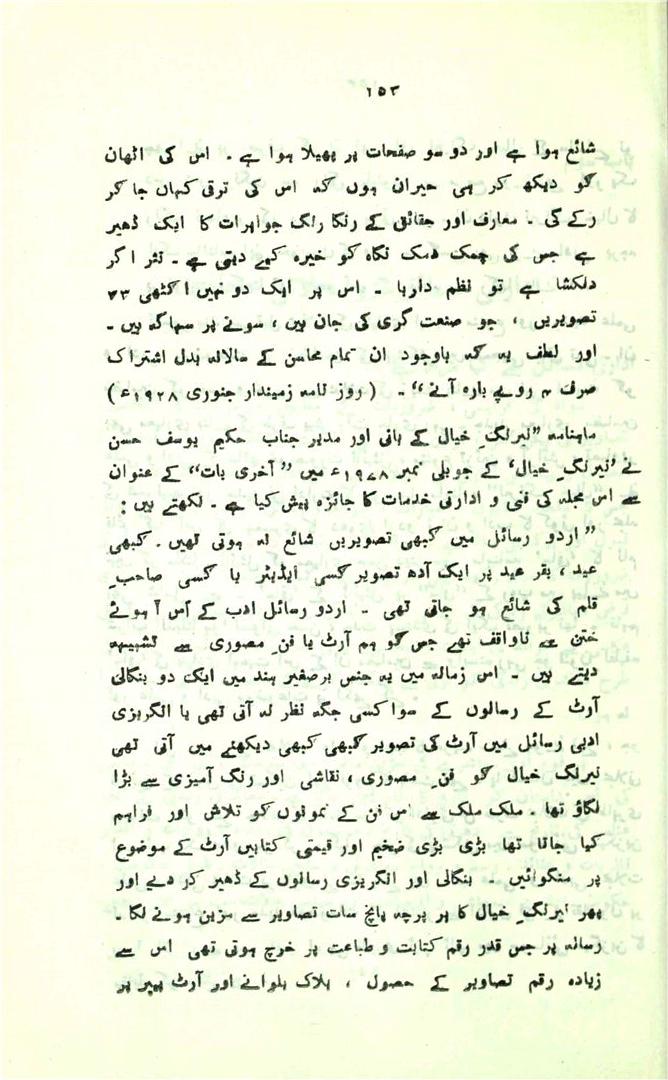 ۱۵۳
شائع ہوا ہے اور دو سو صفحات پر پھیلا ہوا ہے ۔ اس کی اٹھان
کو دیکھ کر ہی حیران ہوں کہ اس کی ترقی کہاں جا کر
رکے گی ۔ معارف اور حقائق کے رنگا رنگ جواہرات کا ایک ڈھیر
ہے جس کی چمک دمک نگاہ کو خیرہ کیے دیتی ہے ۔ نثر اگر
دلکشا ہے تو نظم دلربا ۔ اس پر ایک دو نہیں اکٹھی ۷۳
تصویریں ، جو صنعت گری کی جان ہیں ، سونے پر سہاگہ ہیں ۔
اور لطف یہ کہ باوجود ان تمام محاسن کے سالانہ بدل اشتراک
صرف ۴ روپے بارہ آنے“ ۔ ( روز نامہ زمیندار جنوری ۱۹۲۸ء )
ماہنامہ ”نیرنگِ خیال کے بانی اور مدیر جناب حکیم یوسف حسن
نے ’نیرنگِ خیال‘ کے جوبلی نمبر ۱۹۷۸ء میں ”آخری بات“ کے عنوان
سے اس مجلہ کی فنی و ادارتی خدمات کا جائزہ پیش کیا ہے ۔ لکھتے ہیں :
”اردو رسائل میں کبھی تصویریں شائع نہ ہوتی تھیں ۔ کبھی
عید ، بقر عید پر ایک آدھ تصویر کسی ایڈیٹر یا کسی صاحبِ
قلم کی شائع ہو جاتی تھی ۔ اردو رسائل ادب کے اس آہوئے
ختن سے ناواقف تھے جس کو ہم آرٹ یا فنِ مصوری سے تشبیہہ
دیتے ہیں ۔ اس زمانہ میں یہ جنس برصغیر ہند میں ایک دو بنگالی
آرٹ کے رسالوں کے سوا کسی جگہ نظر نہ آتی تھی یا انگریزی
ادبی رسائل میں آرٹ کی تصویر کبھی کبھی دیکھنے میں آتی تھی
نیرنگ خیال کو فنِ مصوری ، نقاشی اور رنگ آمیزی سے بڑا
لگاؤ تھا ۔ ملک ملک سے اس فن کے نمونوں کو تلاش اور فراہم
کیا جاتا تھا بڑی بڑی ضخیم اور قیمتی کتابیں آرٹ کے موضوع
پر منگوائیں ۔ بنگالی اور انگریزی رسالوں کے ڈھیر کر دیے اور
پھر نیرنگِ خیال کا ہر پرچہ پانچ سات تصاویر سے مزین ہونے لگا ۔
رسالہ پر جس قدر رقم کتابت و طباعت پر خرچ ہوتی تھی اس سے
زیادہ رقم تصاویر کے حصول ، بلاک بنوانے اور آرٹ پیپر پر